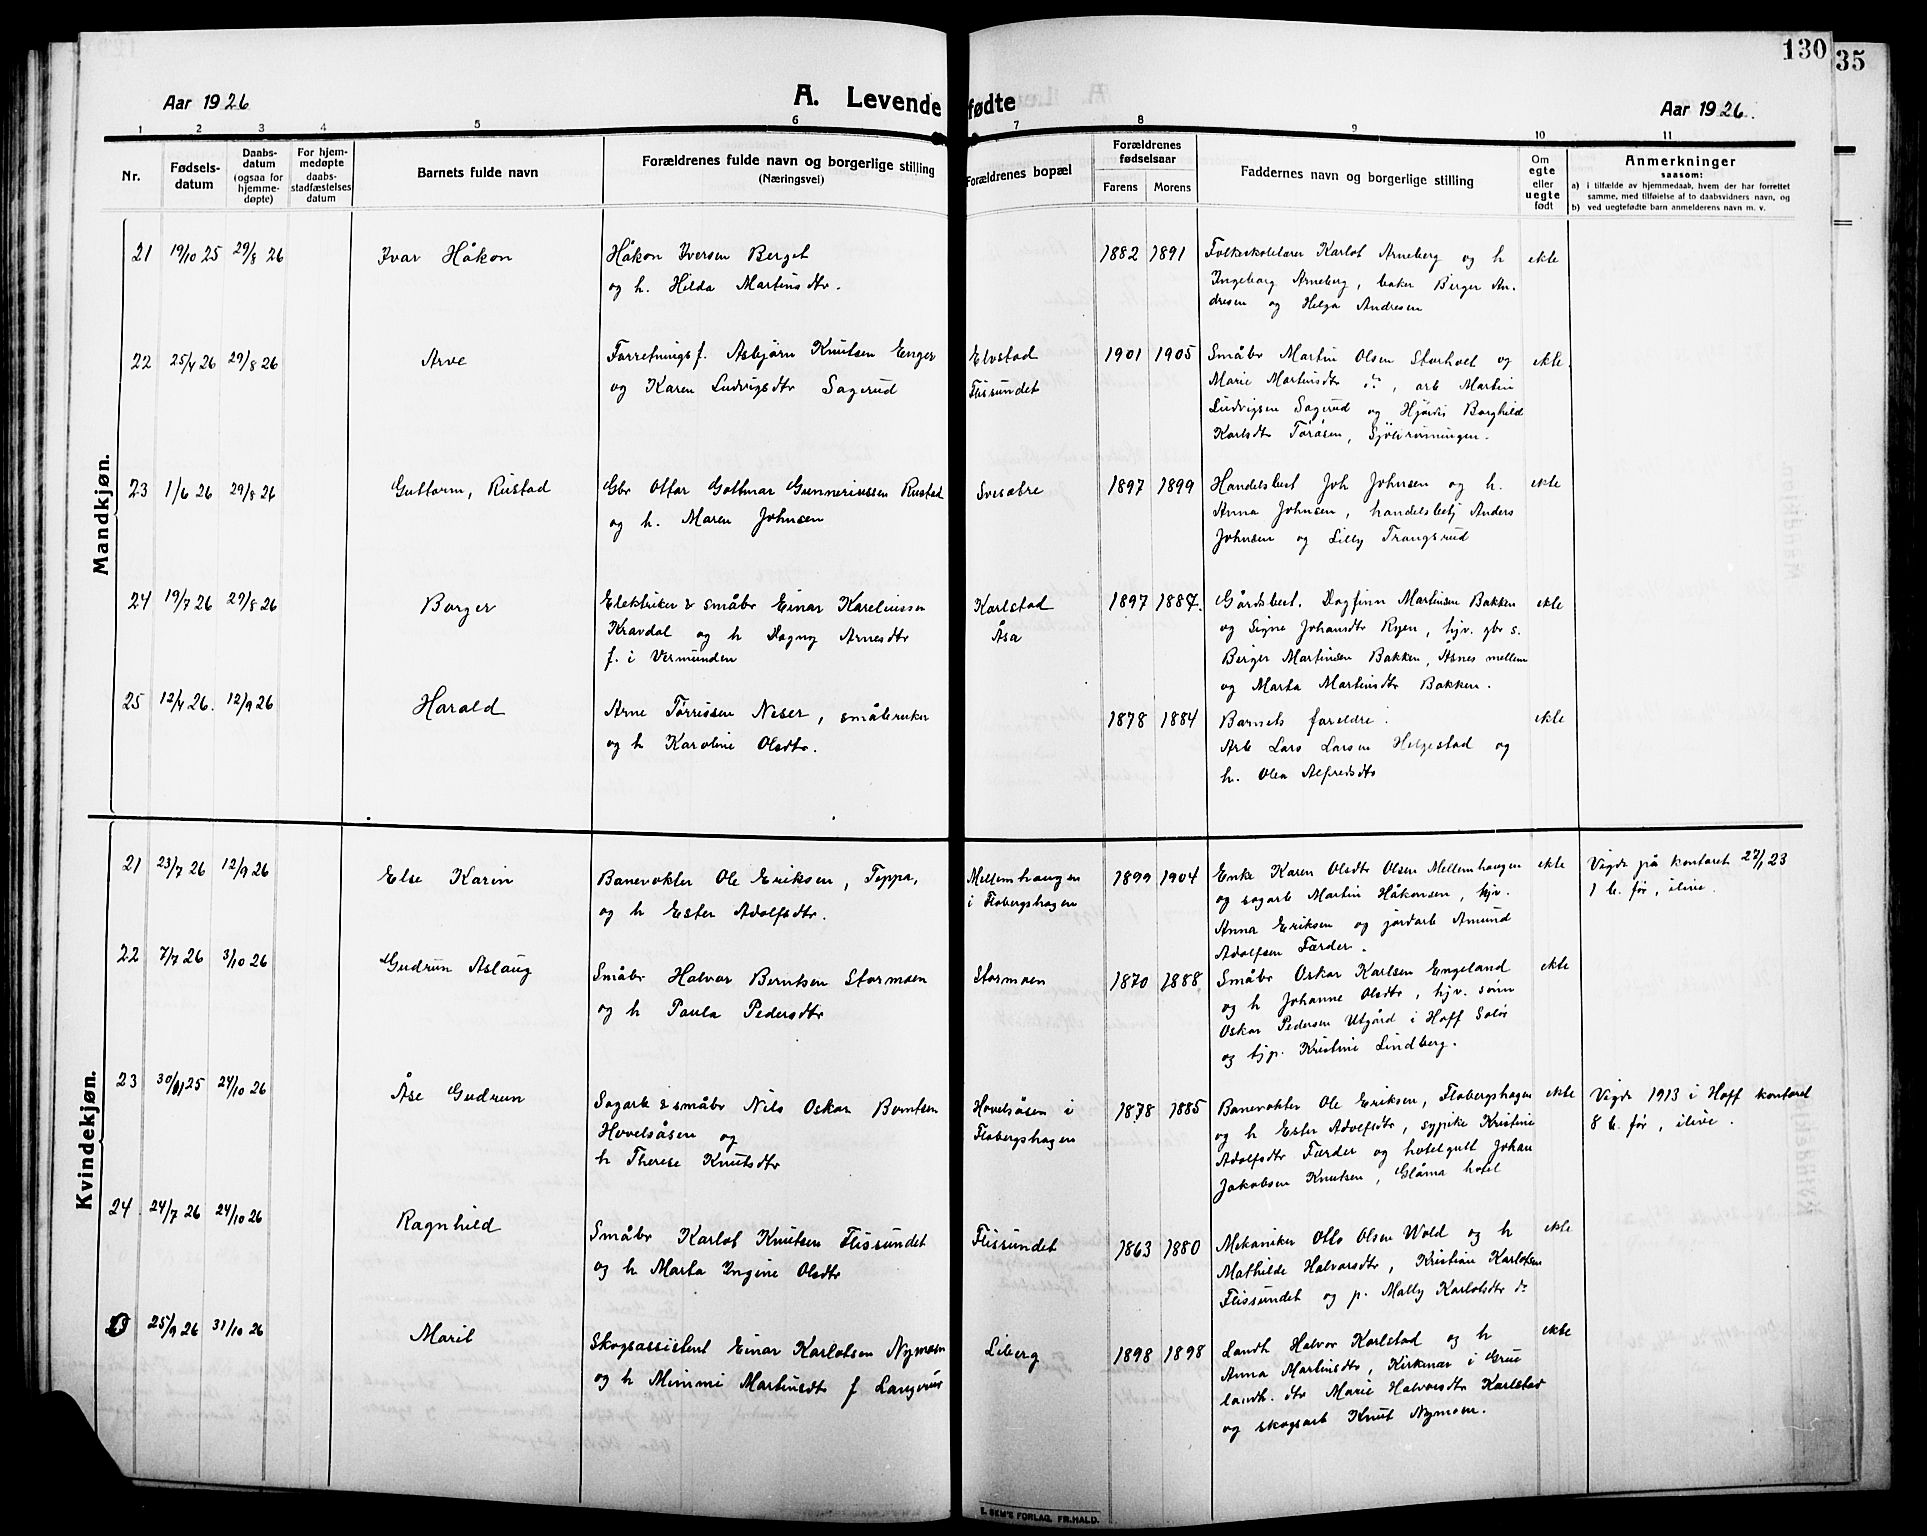 130
35
Aar 1926
A. Levende fødte
Aar 1926.
1 2 3 4 5 6 7 8 9 10 11
Nr.
Fødsels-
datum
Daabs-
datum
(ogsaa for
hjemme-
døpte)
For hjem-
medøpte
daabs-
stadfæstelses
datum
Barnets fulde navn
Forældrenes fulde navn og borgerlige stilling
(Næringsvei)
Forældrenes bopæl
Forældrenes
fødselsaar
Farens Morens
Faddernes navn og borgerlige stilling
Om
egte
eller
uegte
født
Anmerkninger
saasom:
a) i tilfælde av hjemmedaab, hvem der har forrettet
samme, med tilføielse af to daabsvidners navn, og
b) ved uegtefødte barn anmelderens navn m. v.
Mandkjøn.
21 19/10 25 29/8 26 Ivar Håkon
Håkon Iversen Berget
og h. Hilda Martinsdtr.
1882 1891
Folkeskolelærer Karlot Arneberg og h
Ingeborg Arneberg, baker Birger An-
dresen og Helga Andresen
ekte
22 25/4 26 29/8 26 Arve
Forretningsf. Asbjørn Knutsen Enger
og Karen Ludvigsdtr Sagerud
Elvstad
Flisundet
1901 1905
Småbr Martin Olsen Storholt og
Marie Martinsdtr do, arb Martin
Ludvigsen Sagerud og Hjørdis Borghild
Karlsdtr Toråsen,
ekte.
23 1/6 26 29/8 26 Guttorm, Rustad
Gbr Ottar Gottmar Gunneriussen Rustad
og h. Maren Johnsen
1897 1899
Handelsbest Joh Johnsen og h.
Anna Johnsen, handelsbetj Anders
Johnsen og Lilly Trangsrud
ekte
24 19/7 26 29/8 26 Borger
Elektriker & småbr Einar Kareliussen
Kravdal og h Dagny Arnesdtr
f. i Vermunden
Karlstad
Åsa
1897 1887.
Gårdsbest. Dagfinn Martinsen Bakken
og Signe Johansdtr Ryen, hjv. gbr s.
Birger Martinsen Bakken, Åsnes mellem
og Marta Martinsdtr Bakken.
ekte
25 12/4 26. 12/9 26 Harald
Arne Tørrissen Neser, småbruker
og h Karoline Olsdtr.
1878 1884
Barnets foreldre.
Arb Lars Larsen Helgestad og
h. Olea Alfredsdtr
ekte
Kvindekjøn.
21 23/7 26 12/9 26 Else Karin
Banevokter Ole Eriksen, Teppa,
og h Ester Adolfsdtr.
Mellemhaugen
i Flobergshagen
1899 1904
Enke Karen Olsdtr Olsen Mellemhaugen
og sagarb Martin Håkonsen, hjv.
Anna Eriksen og jordarb Amund
Adolfsen Færder.
ekte
Vigde på kontoret 27/1 23
1 b. før, ilive.
22 7/7 26 3/10 26 Gudrun Aslaug
Småbr Halvor Berntsen Stormoen
og h Paula Pedersdtr
Stormoen
1870 1888.
Småbr Oskar Karlsen Engeland
og h Johanne Olsdtr, hjv. sønn
Oskar Pedersen Utgård i Hoff Solør
og tjp. Kristine Lindberg.
ekte
23 30/11 25 24/10 26 Åse Gudrun
Sagarb & småbr Nils Oskar Berntsen
Hovelsåsen og
h Therese Knutsdtr
Hovelsåsen i
Flobergshagen
1878 1885
Banevokter Ole Eriksen, Flobergshagen
og h Ester Adolfsdtr, sypike Kristine
Adolfsdtr Færder og hotelgutt Johan
Jakobsen Knutsen, Glåma hotel
ekte
Vigde 1913 i Hoff kontoret
8 b. før, ilive.
24 24/7 26 24/10 26 Ragnhild
Småbr Karlot Knutsen Flissundet
og h Marta Ingine Olsdtr
Flissundet
1863 1880
Mekaniker Otto Olsen Wold og h
Mathilde Halvorsdtr, Kristian Karlotsen
Flissundet og p. Mally Karlotsdtr do
ekte
25 25/9 26 31/10 26 Marit
Skogsassistent Einar Karlotsen Nymoen
og h Mimmi Martinsdtr f Langerud
Liberg
1898 1898
Landh Halvor Karlstad og h
Anna Martinsdtr, Kirkenær i Grue
landh. dtr Marie Halvorsdtr Karlstad
og skogsarb Knut Nymoen.
ekte
E. SEM'S FORLAG, FR.HALD.